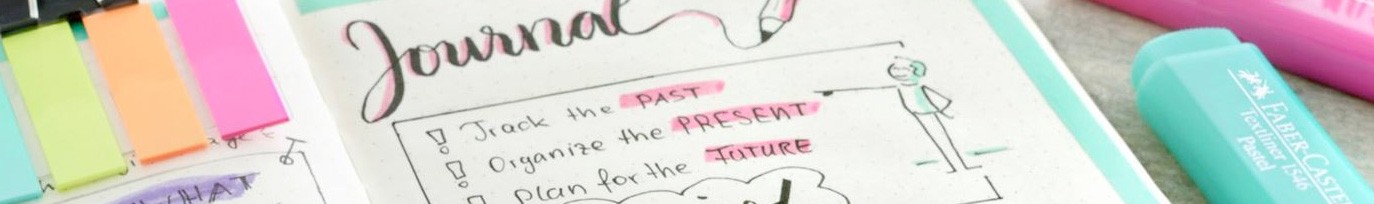 Journal
Track the PAST
Organize the PRESENT
Plan for the FUTURE
WHAT
FABER-CASTELL
Textliner 1546
Pastel